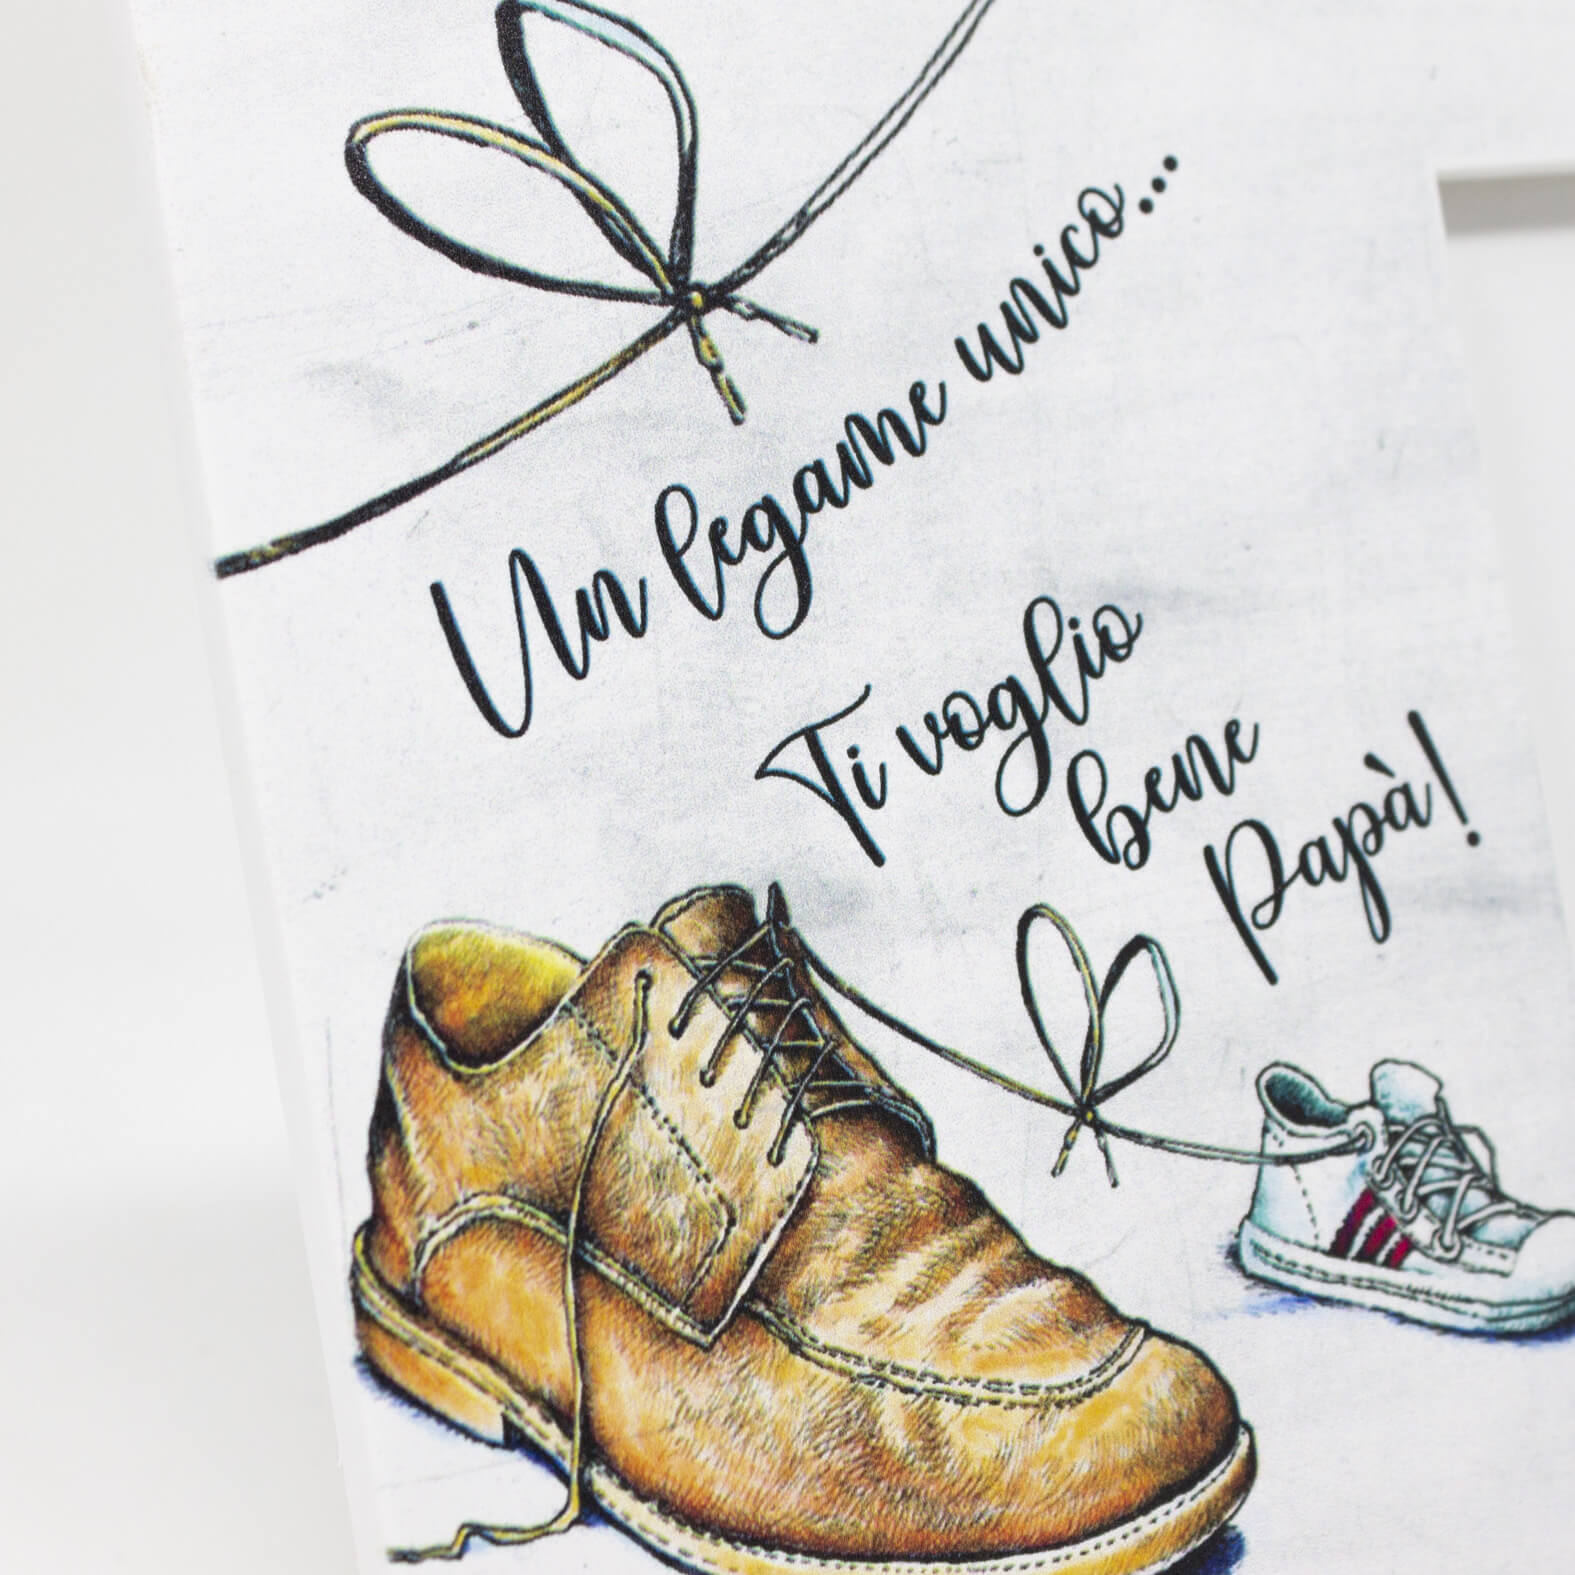 Un legame unico...
Ti voglio
bene
Papà!